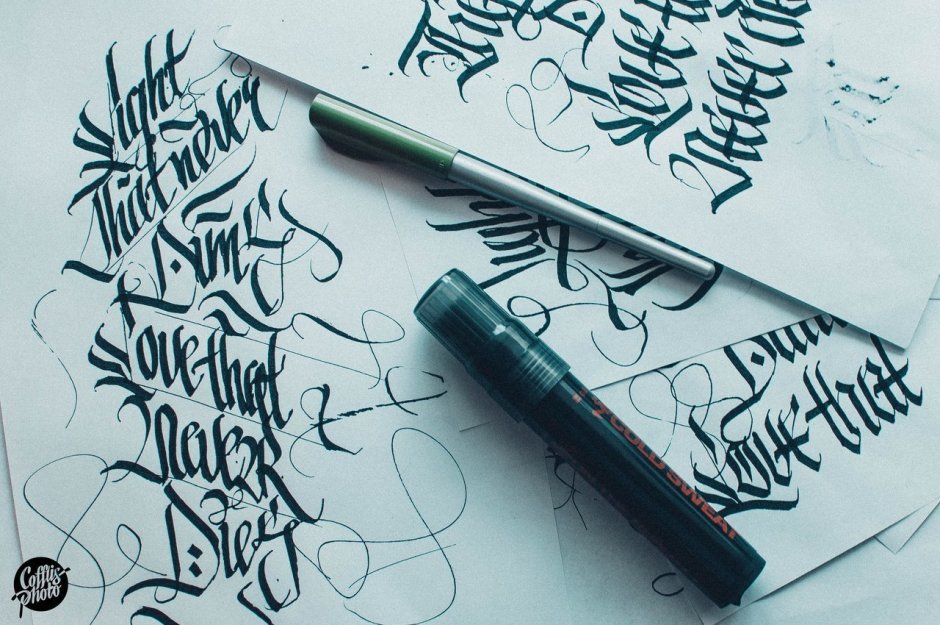 Light
That never
Dims
Love that
Never
Dies
Love th
Never
Love that
COLD SWEAT
Cofflis
Photo